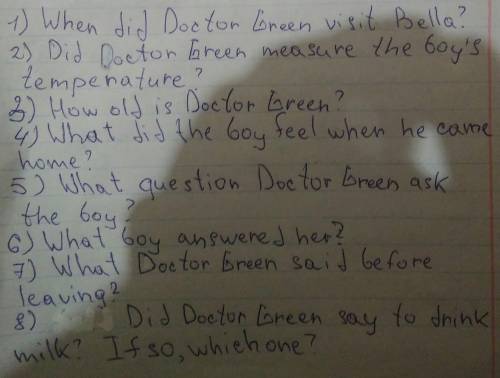 1) When did Doctor Green visit Bella?
2) Did Doctor Green measure the boy's
temperature?
3) How old is Doctor Green?
4) What did the boy feel when he came
home?
5) What question Doctor Green ask
the boy?
6) What boy answered her?
7) What Doctor Green said before
leaving?
8) Did Doctor Green say to drink
milk? If so, which one?